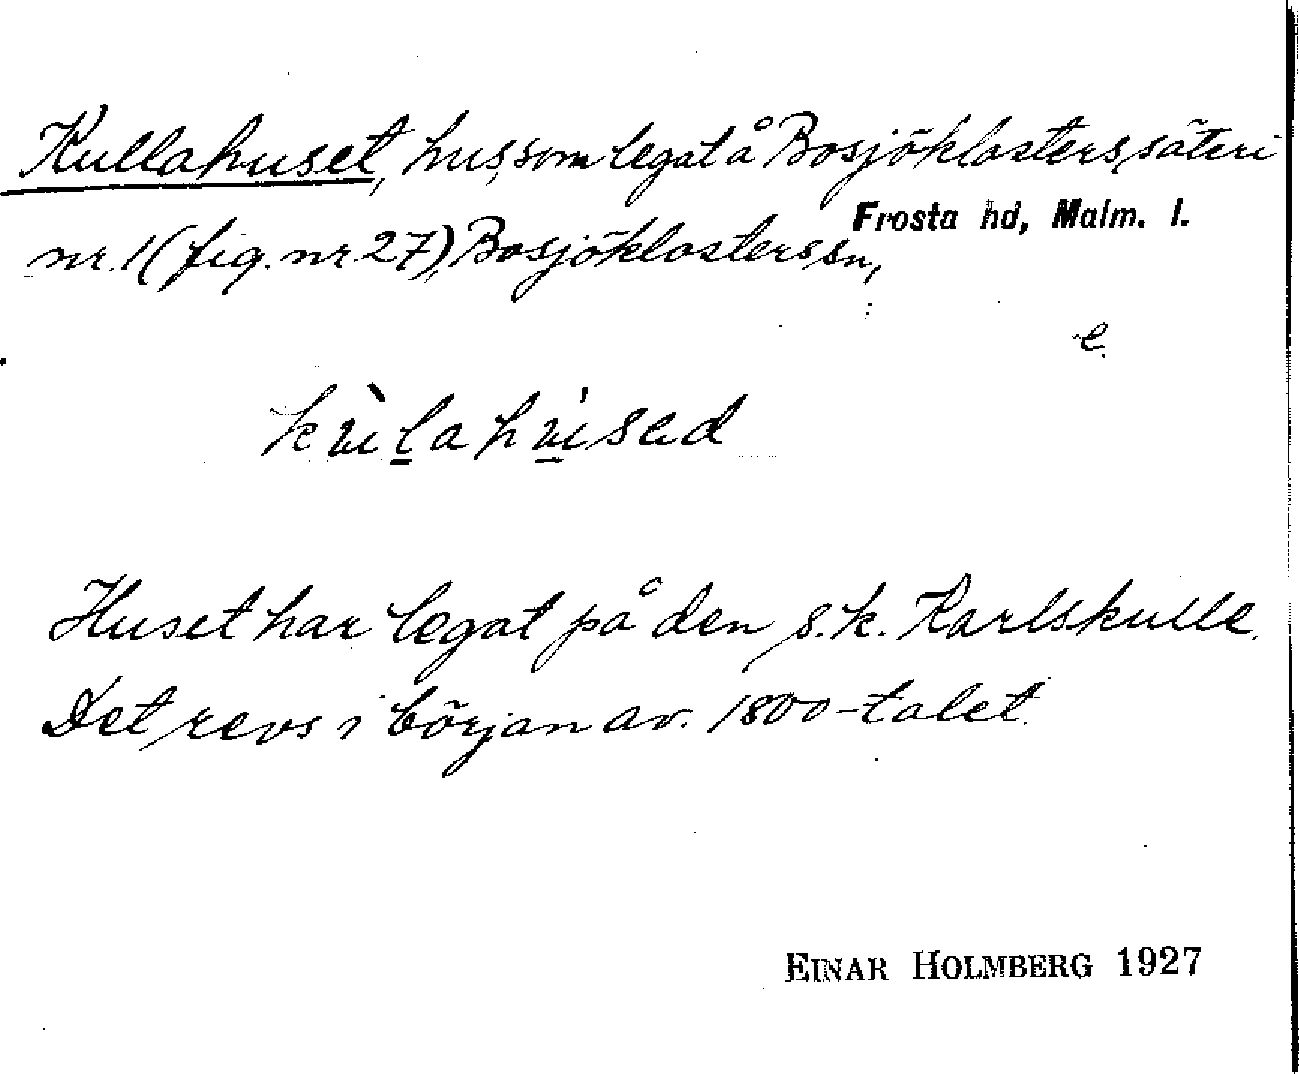 Kullahuset, hus, som legat å Bosjöklosters säteri
nr 1 (fig. nr 27), Bosjöklosters sn,
Frosta hd, Malm. l.
e.
Huset har legat på den s.k. Karlskulle.
Det revs i början av 1800-talet.
EINAR HOLMBERG 1927